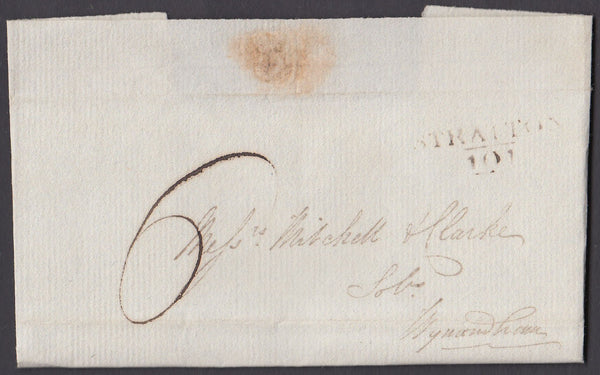 STRATTON
101
6
Messrs. Mitchell & Clarke
Solrs.
Wymondham